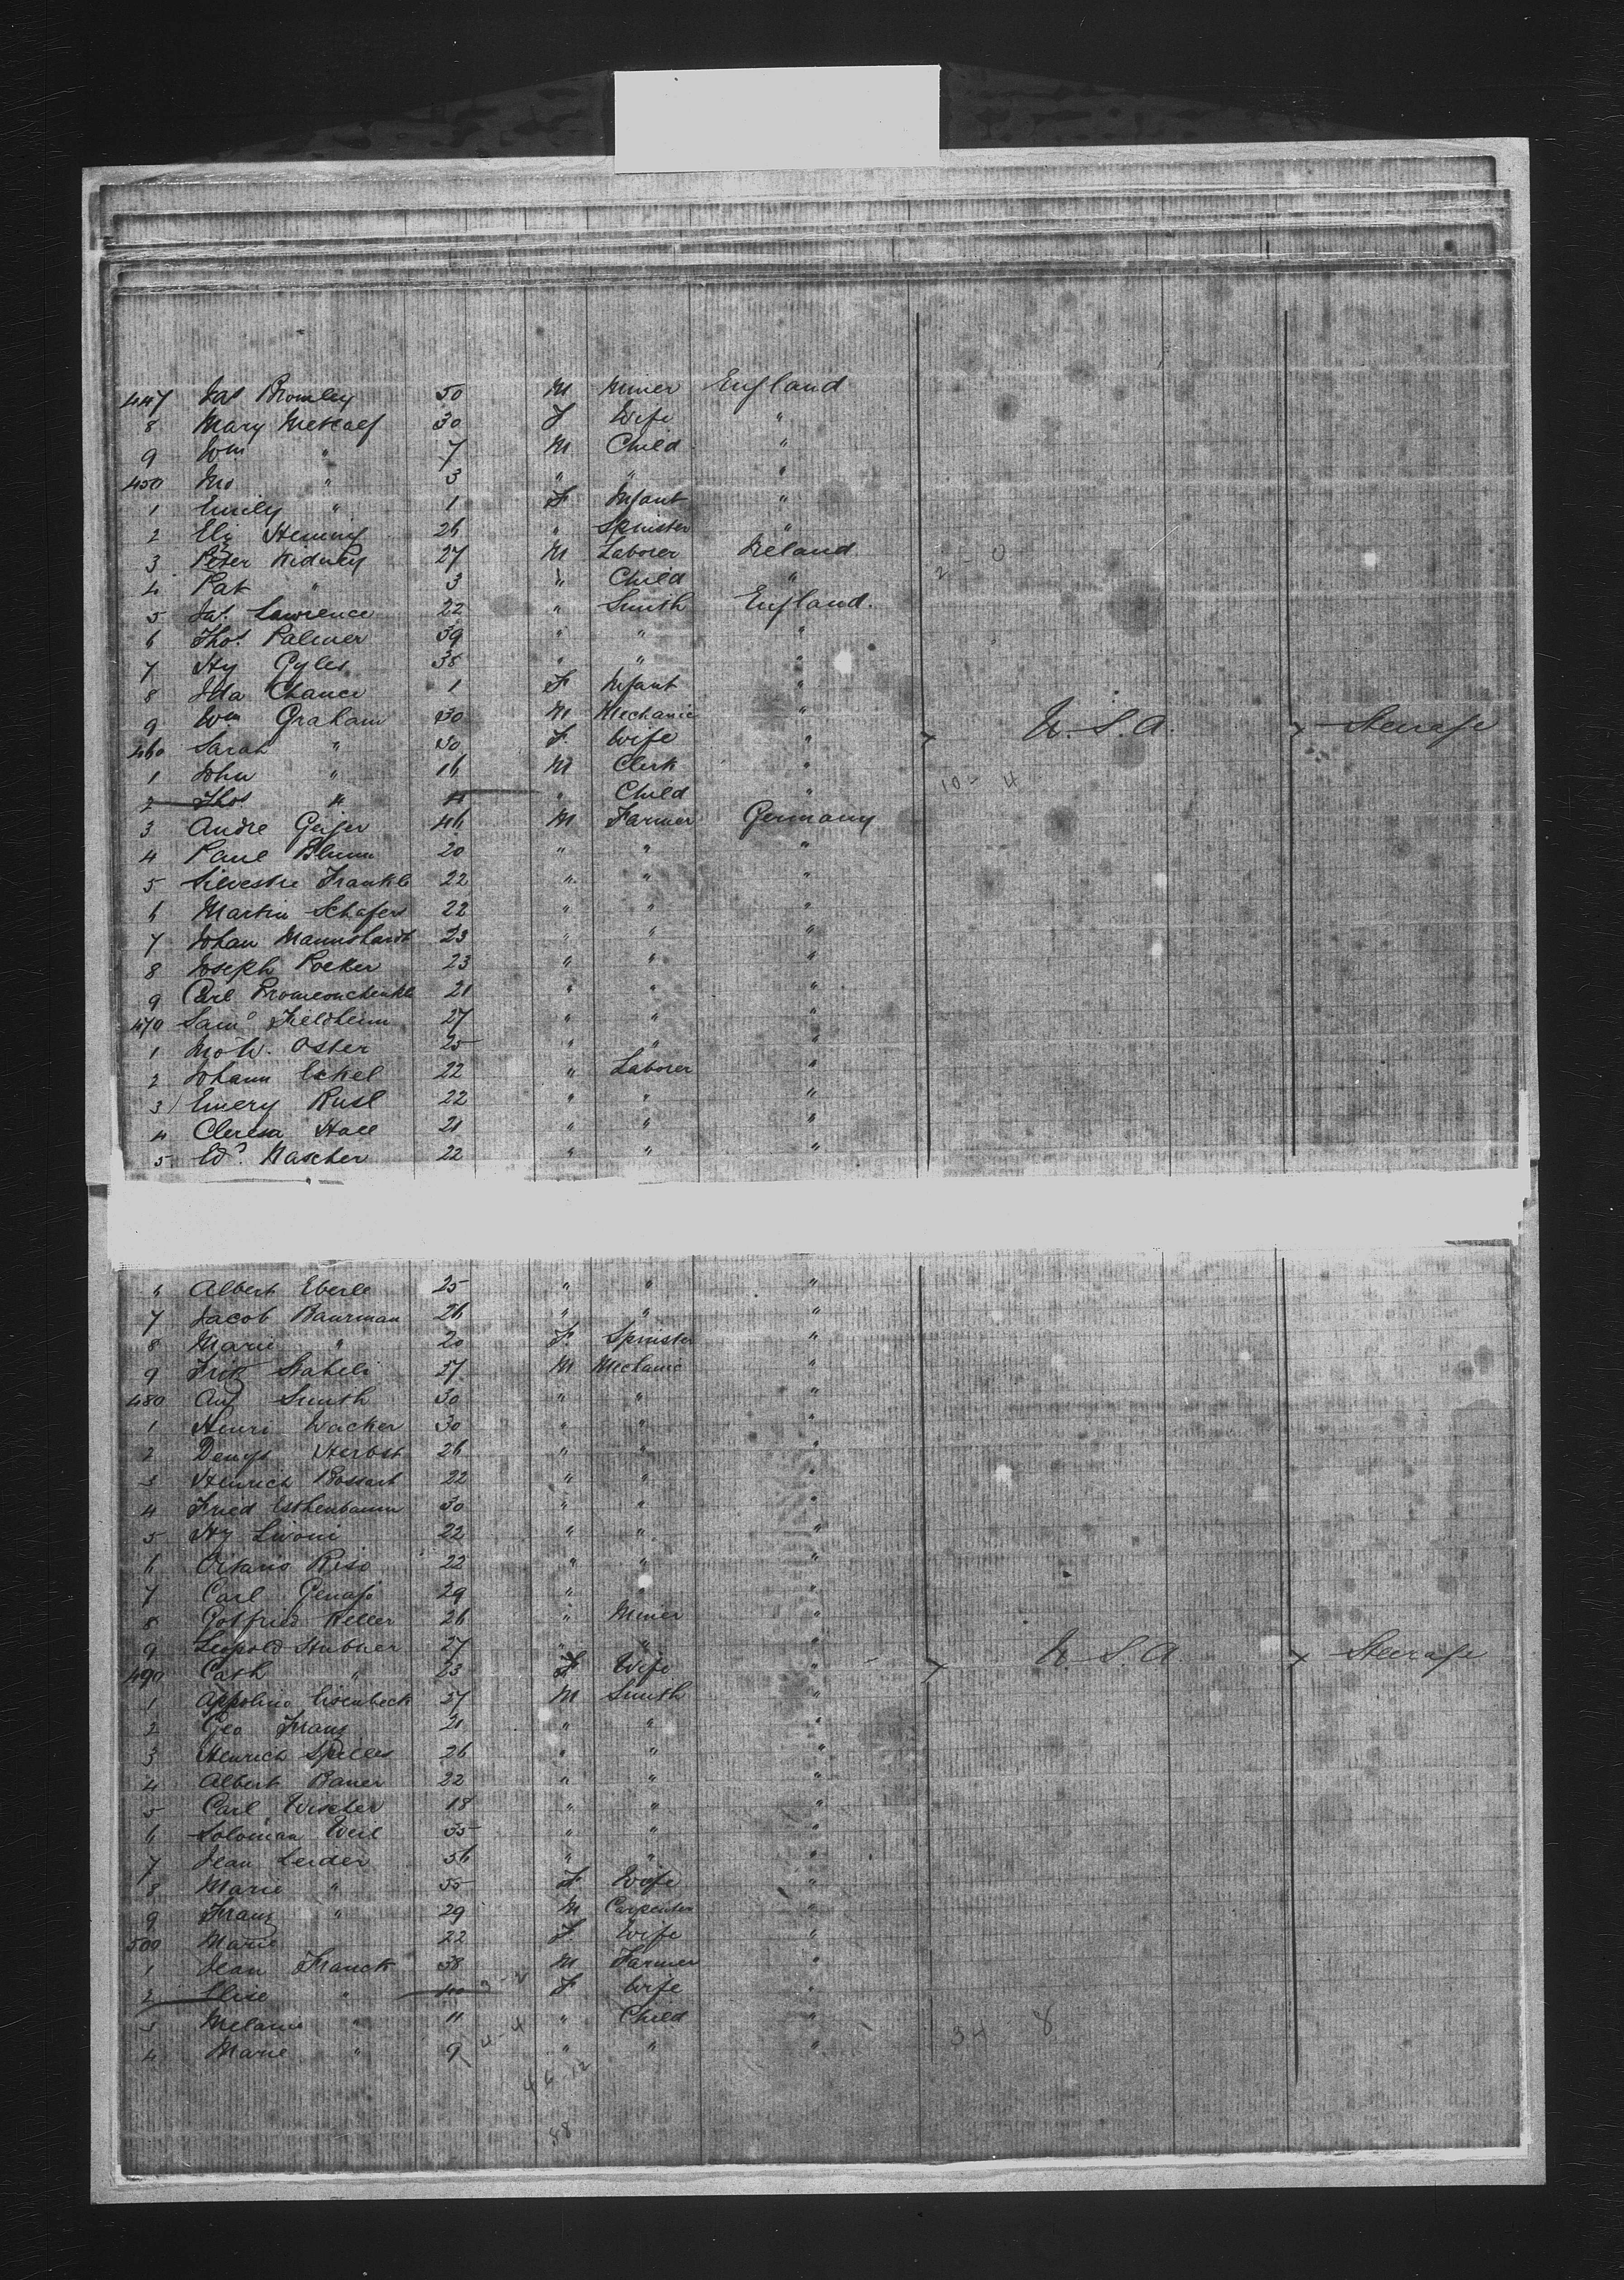 447 Jas Bromley 50 M Miner England
8 Mary Metcalf 30 F Wife "
9 Wm " 7 M Child "
450 Jno " 3 " " "
1 Emily " 1 F Infant "
2 Eliz Heming 26 " Spinster "
3 Peter Kidney 27 M Laborer Ireland
4 Pat " 3 " Child "
5 Jas. Lawrence 22 " Smith England.
6 Thos. Palmer 39 " " "
7 Hy Gyles 38 " " "
8 Ida Chance 1 F Infant "
9 Wm Graham 30 M Mechanic " U.S.A. Steerage
460 Sarah " 30 F. Wife "
1 John " 16 M Clerk "
2 Thos " 11 " Child " 10-4
3 Andre Geiger 46 M Farmer Germany
4 Paul Blum 20 " " "
5 Silvestre Frankle 22 " " "
6 Martin Schafer 22 " " "
7 Johan Mannshardt 23 " " "
8 Joseph Pocker 23 " " "
9 Carl 21 " " "
470 Saml Fieldheim 27 " " "
1 Jno W. Oster 25 " " "
2 Johann Eckel 22 " Laborer "
3 Emery Rusl 22 " " "
4 Hall 21 " " "
5 Edd. Nascher 22 " " "
6 Albert Eberle 25 " " "
7 Jacob Baurman 26 " " "
8 Marie " 20 F. Spinster "
9 Fritz Staheli 27 M Mechanic "
480 Aug Smith 30 " " "
1 Henri Wacker 30 " " "
2 Herbst 26 " " "
3 Henrich Bossart 22 " " "
4 Fried Esthenbaum 30 " " "
5 Hy Livoni 22 " " "
6 Octano Riso 22 " " "
7 Carl 29 " " "
8 Gotfried Keller 26 " Miner "
9 Leopold Hubner 27 " " "
490 Cath " 23 F Wife " U.S.A. Steerage
1 Appolino Eisenbeck 37 M Smith "
2 Geo Franz 21 " " "
3 Henrich Spilles 26 " " "
4 Albert Bauer 22 " " "
5 Carl Wischer 18 " " "
6 Soloman Weil 35 " " "
7 Jean Leider 56 " " "
8 Marie " 55 F Wife "
9 Franz " 29 M Carpenter "
500 Marie 22 F. Wife "
1 Jean Franck 38 M Farmer "
2 Elise " 40 F Wife "
3 Melanie " 11 " Child "
4 Marie " 9 " " "
88